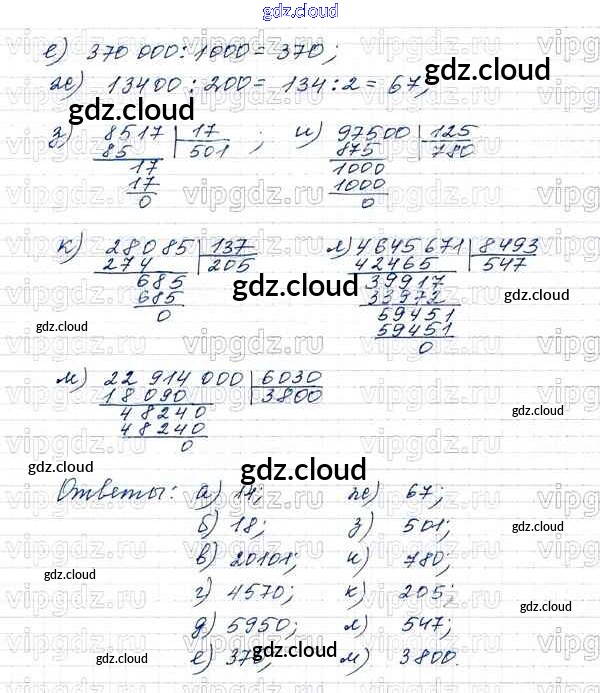 gdz.cloud
е) 370 000 : 1000 = 370;
ж) 13400 : 200 = 134 : 2 = 67;
gdz.cloud gdz.cloud
з) 8517 | 17 ; и) 97500 | 125
85 501 875 780
17 1000
17 1000
0 0
к) 28085 | 137 л) 4645671 | 8493
274 205 42465 547
685 39917
685 33972
0 59451
59451
0
gdz.cloud
gdz.cloud gdz.cloud
м) 22 914 000 | 6030
18 090 3800
48240
48240
0
gdz.cloud
gdz.cloud gdz.cloud gdz.cloud
Ответы: а) 14; ж) 67;
б) 18; з) 501;
gdz.cloud
в) 20101; и) 780;
gdz.cloud
г) 4570; к) 205;
gdz.cloud gdz.cloud
д) 5950; л) 547;
е) 370; м) 3800.
gdz.cloud gdz.cloud
vipgdz.ru